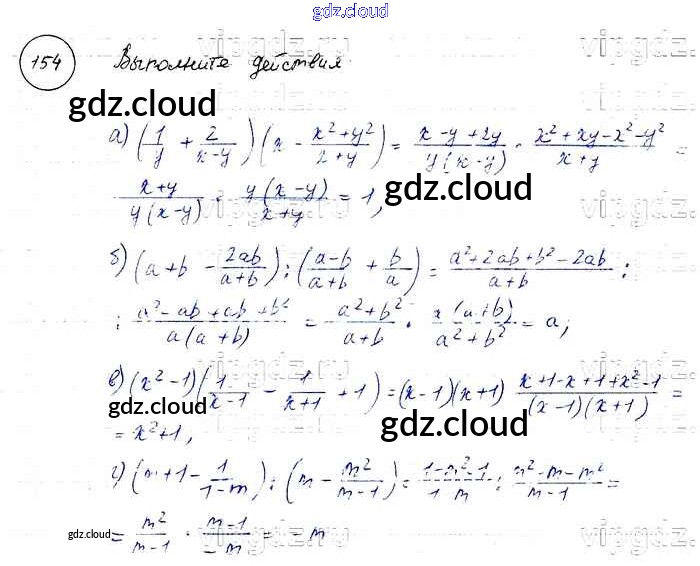 gdz.cloud
154 Выполните действия
gdz.cloud
а) (1/y + 2/(x-y))(x - (x²+y²)/(x+y)) = (x-y+2y)/(y(x-y)) · (x²+xy-x²-y²)/(x+y) =
(x+y)/(y(x-y)) · y(x-y)/(x+y) = 1,
gdz.cloud
б) (a+b - 2ab/(a+b)) : ((a-b)/(a+b) + b/a) = (a²+2ab+b²-2ab)/(a+b) :
: (a²-ab+ab+b²)/(a(a+b)) = (a²+b²)/(a+b) · a(a+b)/(a²+b²) = a;
в) (x²-1)(1/(x-1) - 1/(x+1) + 1) = (x-1)(x+1) (x+1-x+1+x²-1)/((x-1)(x+1)) =
gdz.cloud
= x²+1,
gdz.cloud
г) (m+1 - 1/(1-m)) : (m - m²/(m-1)) = (1-m²-1)/(1-m) : (m²-m-m²)/(m-1) =
= m²/(m-1) · (m-1)/(-m) = -m
gdz.cloud
vipgdz.ru